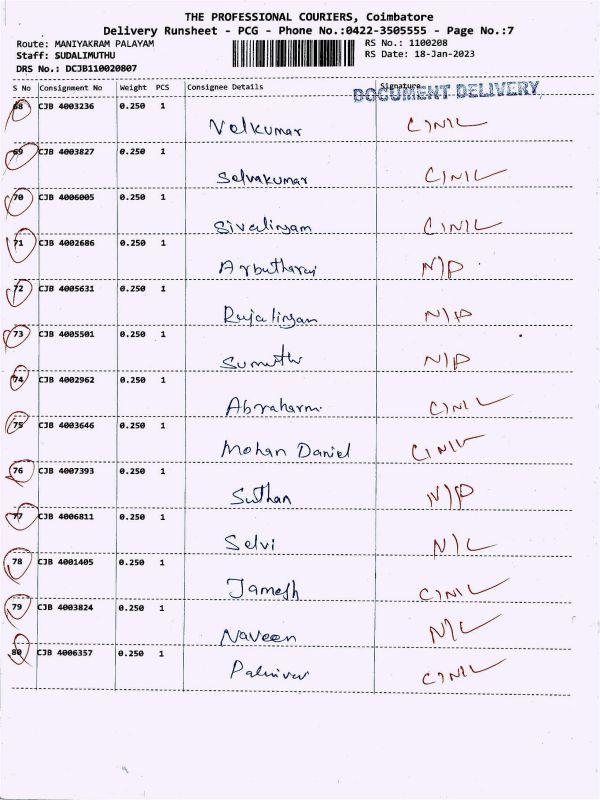 THE PROFESSIONAL COURIERS, Coimbatore
Delivery Runsheet - PCG - Phone No.:0422-3505555 - Page No.:7
Route: MANIYAKRAM PALAYAM RS No.: 1100208
Staff: SUDALIMUTHU RS Date: 18-Jan-2023
DRS No.: DCJB110020807
S No Consignment No Weight PCS Consignee Details Signature
DOCUMENT DELIVERY
68 CJB 4003236 0.250 1
Velkumar C)NIL
69 CJB 4003827 0.250 1
Selvakumar C)NIL
70 CJB 4006005 0.250 1
Sivalingam C)NIL
71 CJB 4002686 0.250 1
N/P
72 CJB 4005631 0.250 1
Rajalingam N/P
73 CJB 4005501 0.250 1
N/P
74 CJB 4002962 0.250 1
Abraham C)NIL
75 CJB 4003646 0.250 1
Mohan Daniel C)NIL
76 CJB 4007393 0.250 1
Suthan N/P
77 CJB 4006811 0.250 1
Selvi N/L
78 CJB 4001405 0.250 1
Jamesh C)NIL
79 CJB 4003824 0.250 1
Naveen N/L
80 CJB 4006357 0.250 1
C)NIL